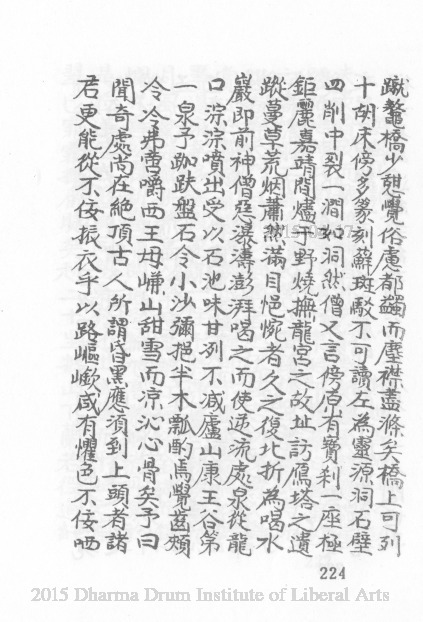 蹴鰲橋少憩覺俗慮都蠲而塵襟盡滌矣橋上可列
十胡床傍多篆刻蘚斑駁不可讀左為靈源洞石壁
四削中裂一澗如洞然僧又言傍原有寶刹一座極
鉅麗嘉靖間燼于野燒撫龍宮之故址訪鴈塔之遺
蹤蔓草荒烟蕭然滿目悒惋者久之復北折為喝水
巖即前神僧惡瀑濤澎湃喝之而使逆流處泉從龍
口淙淙噴出受以石池味甘列不減廬山康王谷第
一泉予跏趺盤石令小沙彌挹半木瓢酌焉覺茲頰
冷冷弗啻嚼西王母嵰山甜雪而凉沁心骨矣予曰
聞奇處尚在絕頂古人所謂昏黑應須到上頭者諸
君更能從不佞振衣乎以路嶇嶔咸有懼色不佞哂
224
2015 Dharma Drum Institute of Liberal Arts